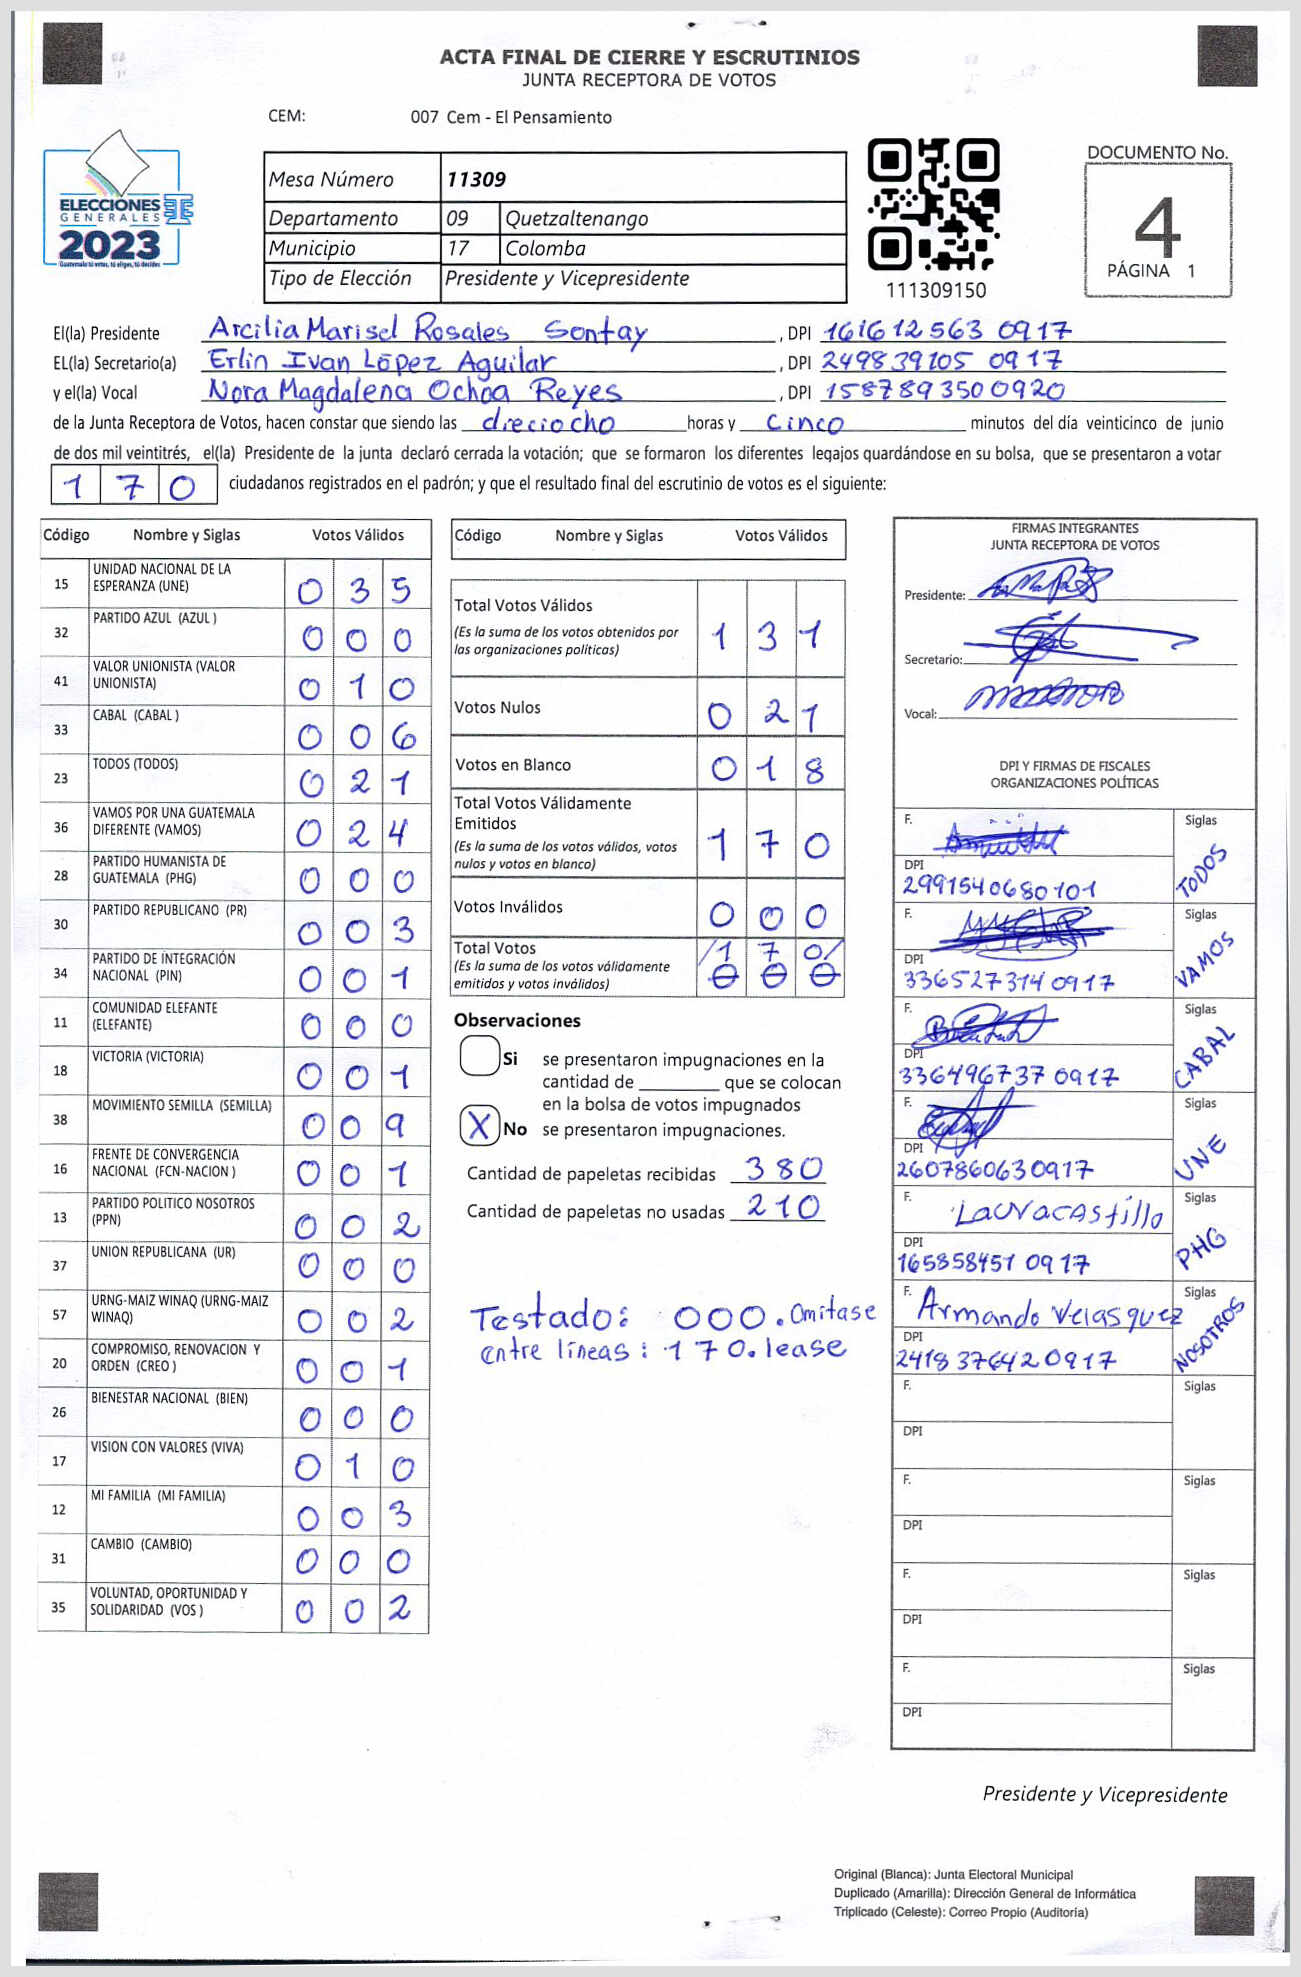 ACTA FINAL DE CIERRE Y ESCRUTINIOS
JUNTA RECEPTORA DE VOTOS
CEM: 007 Cem - El Pensamiento
ELECCIONES
GENERALES
2023
Guatemala tú votas, tú eliges, tú decides
Mesa Número 11309
Departamento 09 Quetzaltenango
Municipio 17 Colomba
Tipo de Elección Presidente y Vicepresidente
111309150
DOCUMENTO No.
4
PÁGINA 1
El(la) Presidente Arcilia Marisel Rosales Sontay, DPI 161612563 0917
EL(la) Secretario(a) Erlin Ivan López Aguilar, DPI 249839105 0917
y el(la) Vocal Nora Magdalena Ochoa Reyes, DPI 1587893500920
de la Junta Receptora de Votos, hacen constar que siendo las dieciocho horas y cinco minutos del día veinticinco de junio
de dos mil veintitrés, el(la) Presidente de la junta declaró cerrada la votación; que se formaron los diferentes legajos guardándose en su bolsa, que se presentaron a votar
170 ciudadanos registrados en el padrón; y que el resultado final del escrutinio de votos es el siguiente:
Código Nombre y Siglas Votos Válidos
15 UNIDAD NACIONAL DE LA ESPERANZA (UNE) 035
32 PARTIDO AZUL (AZUL ) 000
41 VALOR UNIONISTA (VALOR UNIONISTA) 010
33 CABAL (CABAL ) 006
23 TODOS (TODOS) 021
36 VAMOS POR UNA GUATEMALA DIFERENTE (VAMOS) 024
28 PARTIDO HUMANISTA DE GUATEMALA (PHG) 000
30 PARTIDO REPUBLICANO (PR) 003
34 PARTIDO DE INTEGRACIÓN NACIONAL (PIN) 001
11 COMUNIDAD ELEFANTE (ELEFANTE) 000
18 VICTORIA (VICTORIA) 001
38 MOVIMIENTO SEMILLA (SEMILLA) 009
16 FRENTE DE CONVERGENCIA NACIONAL (FCN-NACION ) 001
13 PARTIDO POLITICO NOSOTROS (PPN) 002
37 UNION REPUBLICANA (UR) 000
57 URNG-MAIZ WINAQ (URNG-MAIZ WINAQ) 002
20 COMPROMISO, RENOVACION Y ORDEN (CREO ) 001
26 BIENESTAR NACIONAL (BIEN) 000
17 VISION CON VALORES (VIVA) 010
12 MI FAMILIA (MI FAMILIA) 003
31 CAMBIO (CAMBIO) 000
35 VOLUNTAD, OPORTUNIDAD Y SOLIDARIDAD (VOS ) 002
Código Nombre y Siglas Votos Válidos
Total Votos Válidos 131
(Es la suma de los votos obtenidos por
las organizaciones políticas)
Votos Nulos 021
Votos en Blanco 018
Total Votos Válidamente
Emitidos 170
(Es la suma de los votos válidos, votos
nulos y votos en blanco)
Votos Inválidos 000
Total Votos /170/
(Es la suma de los votos válidamente 000
emitidos y votos inválidos)
Observaciones
Si se presentaron impugnaciones en la
cantidad de ________ que se colocan
en la bolsa de votos impugnados
X No se presentaron impugnaciones.
Cantidad de papeletas recibidas 380
Cantidad de papeletas no usadas 210
Testado: 000. Omitase
entre líneas: 170. lease
FIRMAS INTEGRANTES
JUNTA RECEPTORA DE VOTOS
Presidente:
Secretario:
Vocal:
DPI Y FIRMAS DE FISCALES
ORGANIZACIONES POLÍTICAS
F. Siglas TODOS
DPI 2991540680101
F. Siglas VAMOS
DPI 336527314 0917
F. Siglas CABAL
DPI 336496737 0917
F. Siglas UNE
DPI 2607860630917
F. Laura Castillo Siglas PHG
DPI 165858451 0917
F. Armando Velasquez Siglas NOSOTROS
DPI 2418376420917
F. Siglas
DPI
F. Siglas
DPI
F. Siglas
DPI
F. Siglas
DPI
Presidente y Vicepresidente
Original (Blanca): Junta Electoral Municipal
Duplicado (Amarilla): Dirección General de Informática
Triplicado (Celeste): Correo Propio (Auditoría)